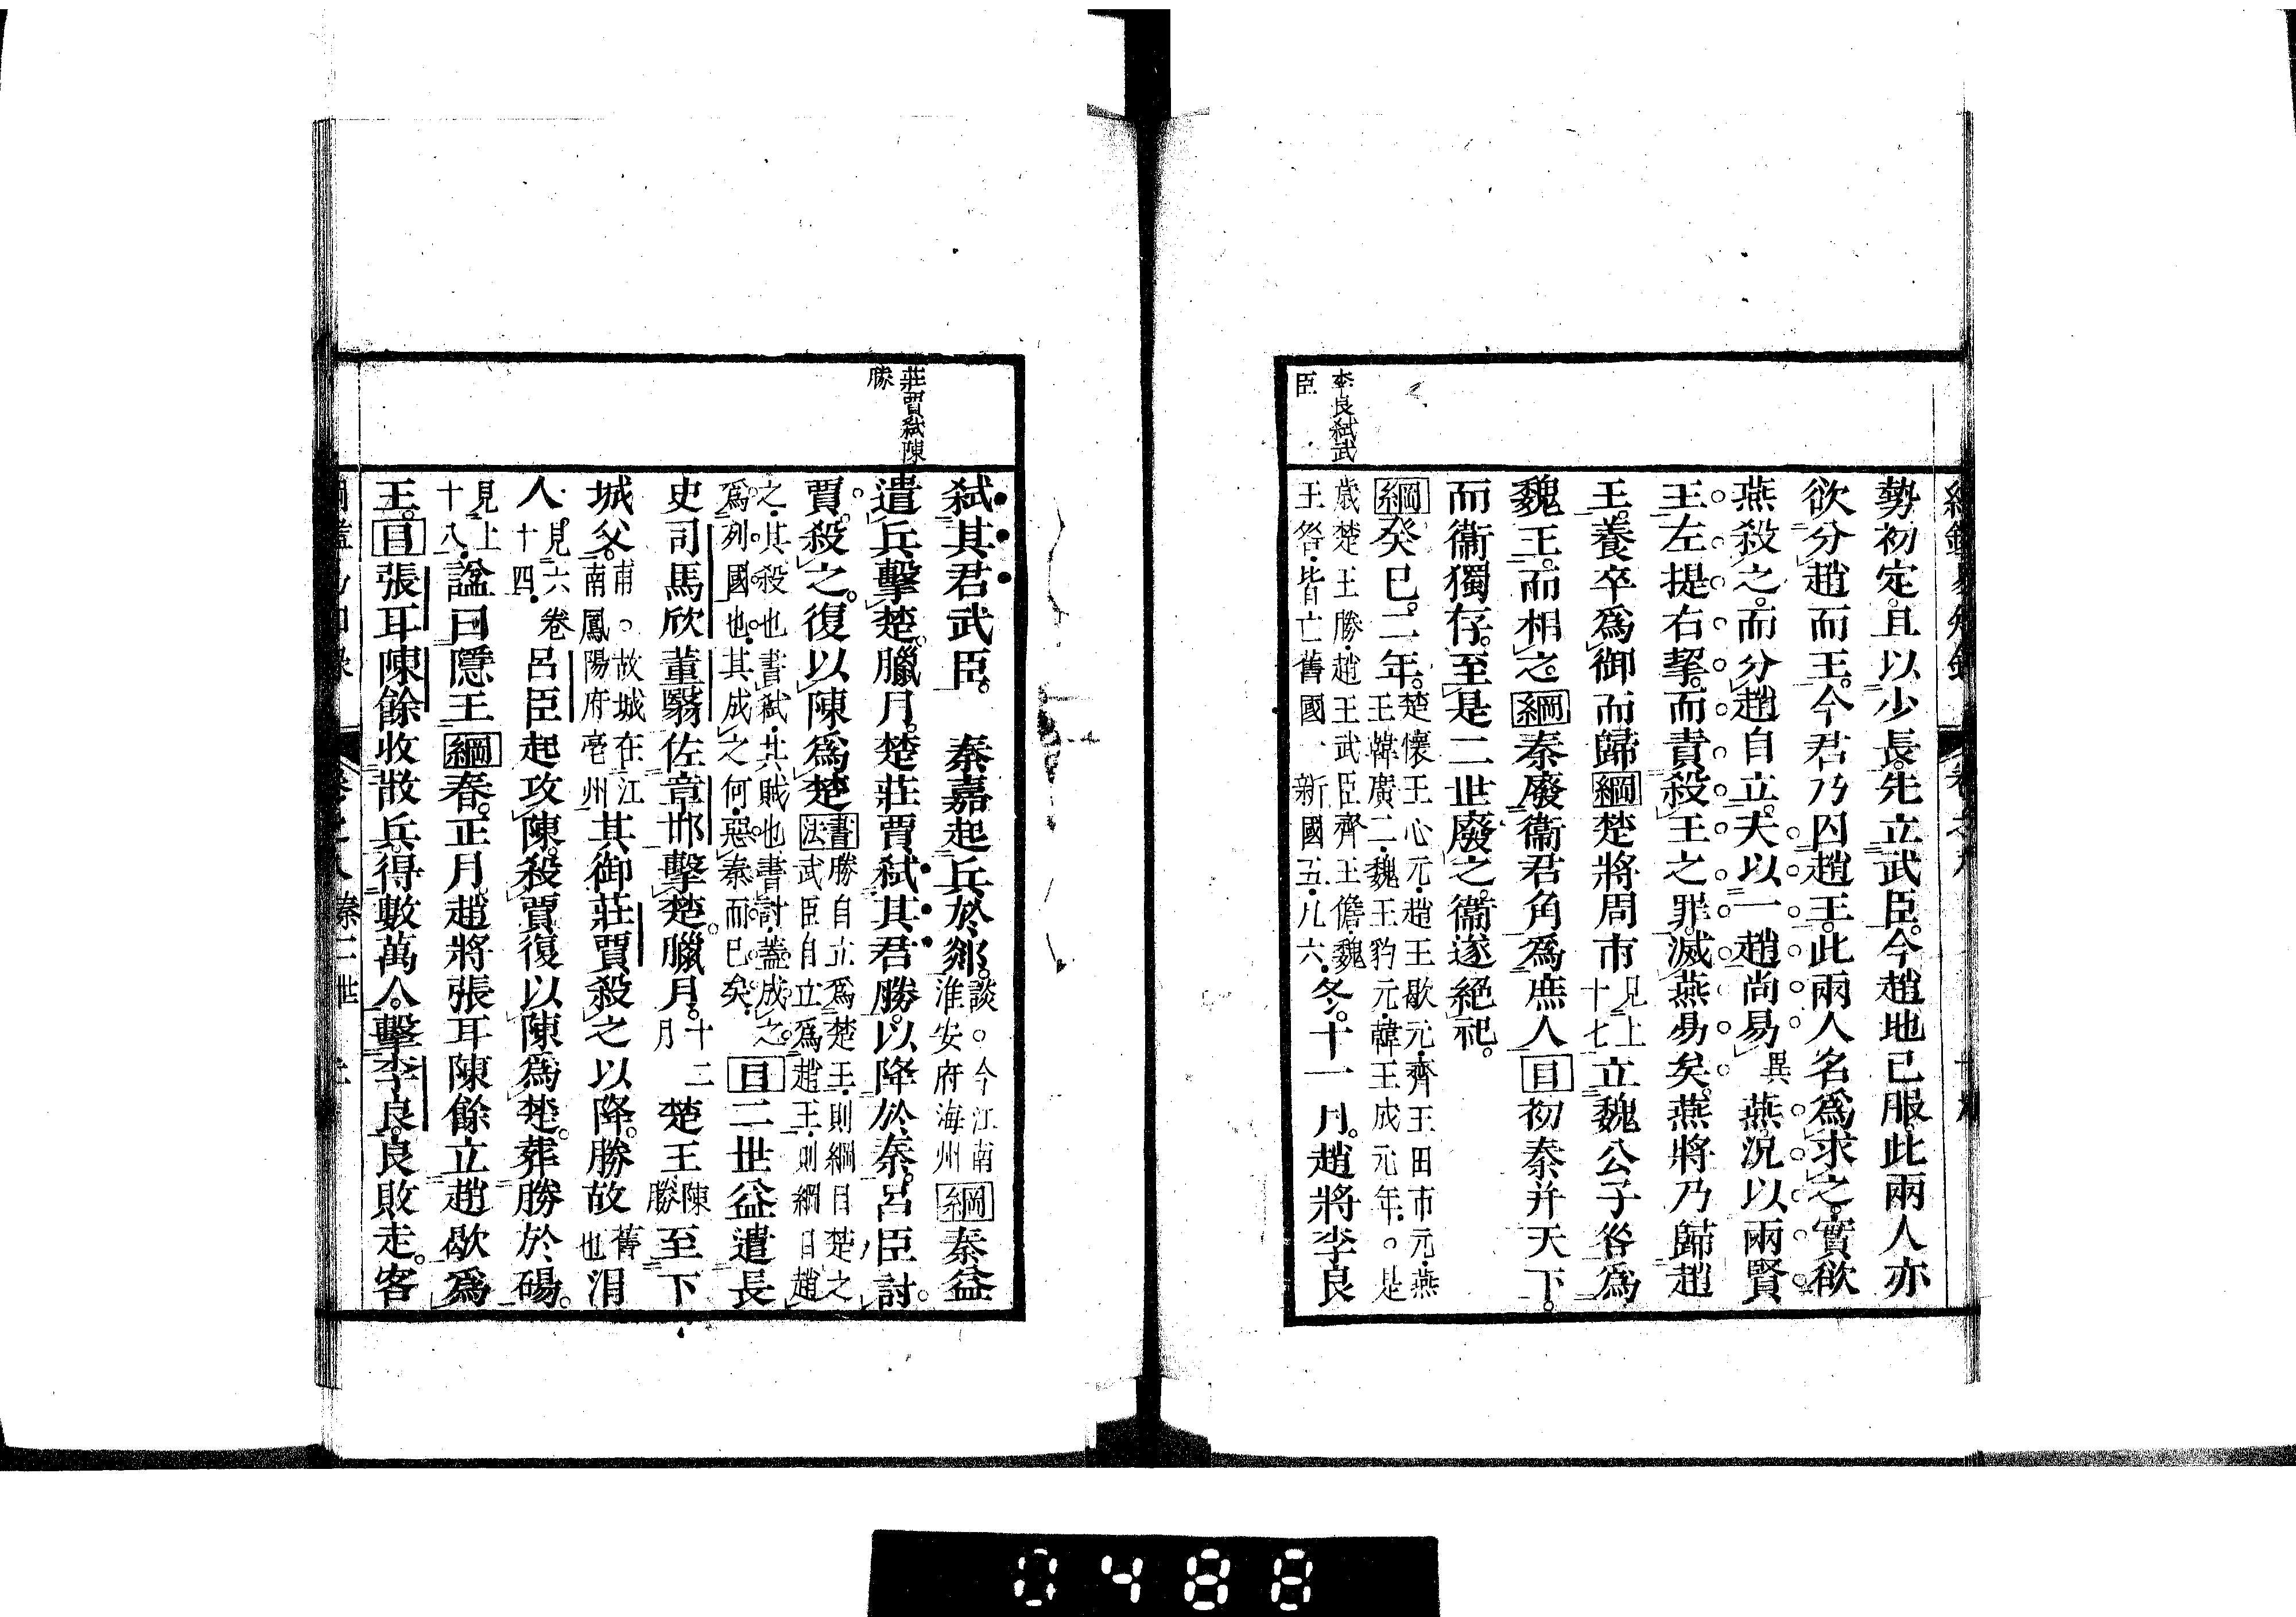 勢初定。且以少長。先立武臣。今趙地已服。此兩人亦
欲分趙而王。今君乃囚趙王。此兩人名爲求之。實欲
燕殺之。而分趙自立。夫以一趙尚易異燕。況以兩賢
王左提右挈。而責殺王之罪。滅燕易矣。燕將乃歸趙
王。養卒爲御而歸綱楚將周市見上十七立魏公子咎爲
魏王。而相之。綱秦廢衞君角爲庶人目初秦并天下。
而衞獨存。至是二世廢之。衞遂絕祀。
綱癸巳。二年。楚懷王心元。趙王歇元。齊王田市元。燕王韓廣二。魏王豹元。韓王成元年。○是
歲楚王勝。趙王武臣齊王儋。魏王咎。皆亡舊國一新國五。凡六。冬。十一月。趙將李良
李良弑武臣
弑其君武臣。 秦嘉起兵於郯。談。○今江南淮安府海州綱秦益
遣兵擊楚。臘月。楚莊賈弑其君勝。以降於秦。呂臣討
賈。殺之。復以陳爲楚書法勝自立爲楚王。則綱目楚之武臣自立爲趙王。則綱目趙
之。其殺也書弑。其賊也書討。蓋成之。爲列國也。其成之何。惡秦而已矣。目二世益遣長
史司馬欣董翳佐章邯擊楚。臘月。十二月楚王陳勝至下
城父。甫。○故城在江南鳳陽府亳州其御莊賈殺之以降。勝故舊也涓
人。見六卷十四。呂臣起攻陳。殺賈復以陳爲楚。葬勝於碭。
見上十八。諡曰隱王綱春。正月。趙將張耳陳餘立趙歇爲
王。目張耳陳餘收散兵。得數萬人。擊李良。良敗走。客
莊賈弑陳勝
秦二世